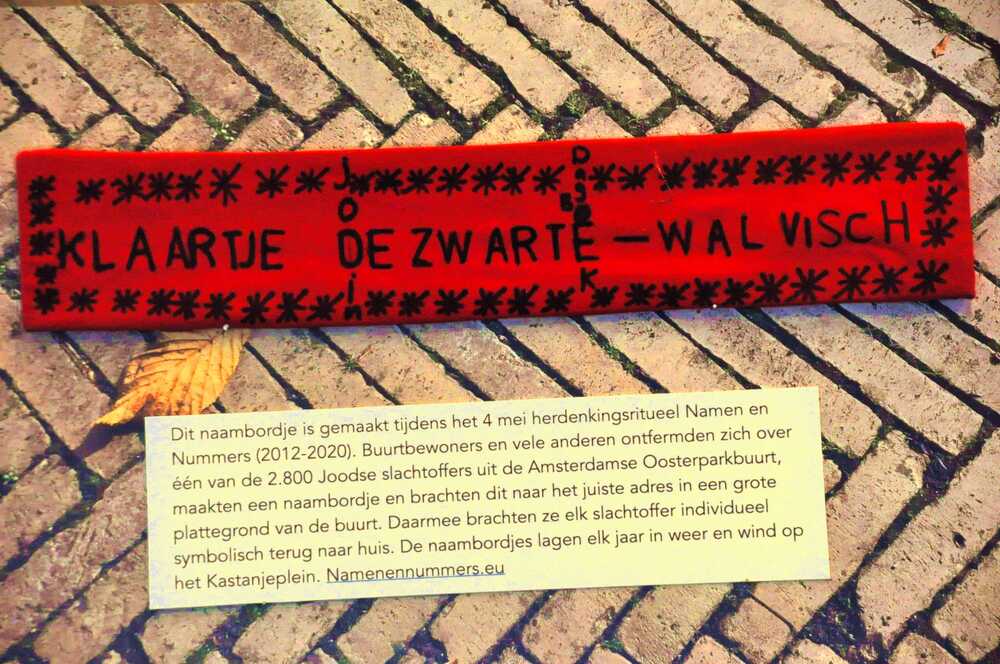 JODin
KLAARTJE DE ZWARTE – WALVISCH
Dit naambordje is gemaakt tijdens het 4 mei herdenkingsritueel Namen en
Nummers (2012-2020). Buurtbewoners en vele anderen ontfermden zich over
één van de 2.800 Joodse slachtoffers uit de Amsterdamse Oosterparkbuurt,
maakten een naambordje en brachten dit naar het juiste adres in een grote
plattegrond van de buurt. Daarmee brachten ze elk slachtoffer individueel
symbolisch terug naar huis. De naambordjes lagen elk jaar in weer en wind op
het Kastanjeplein. Namenennummers.eu